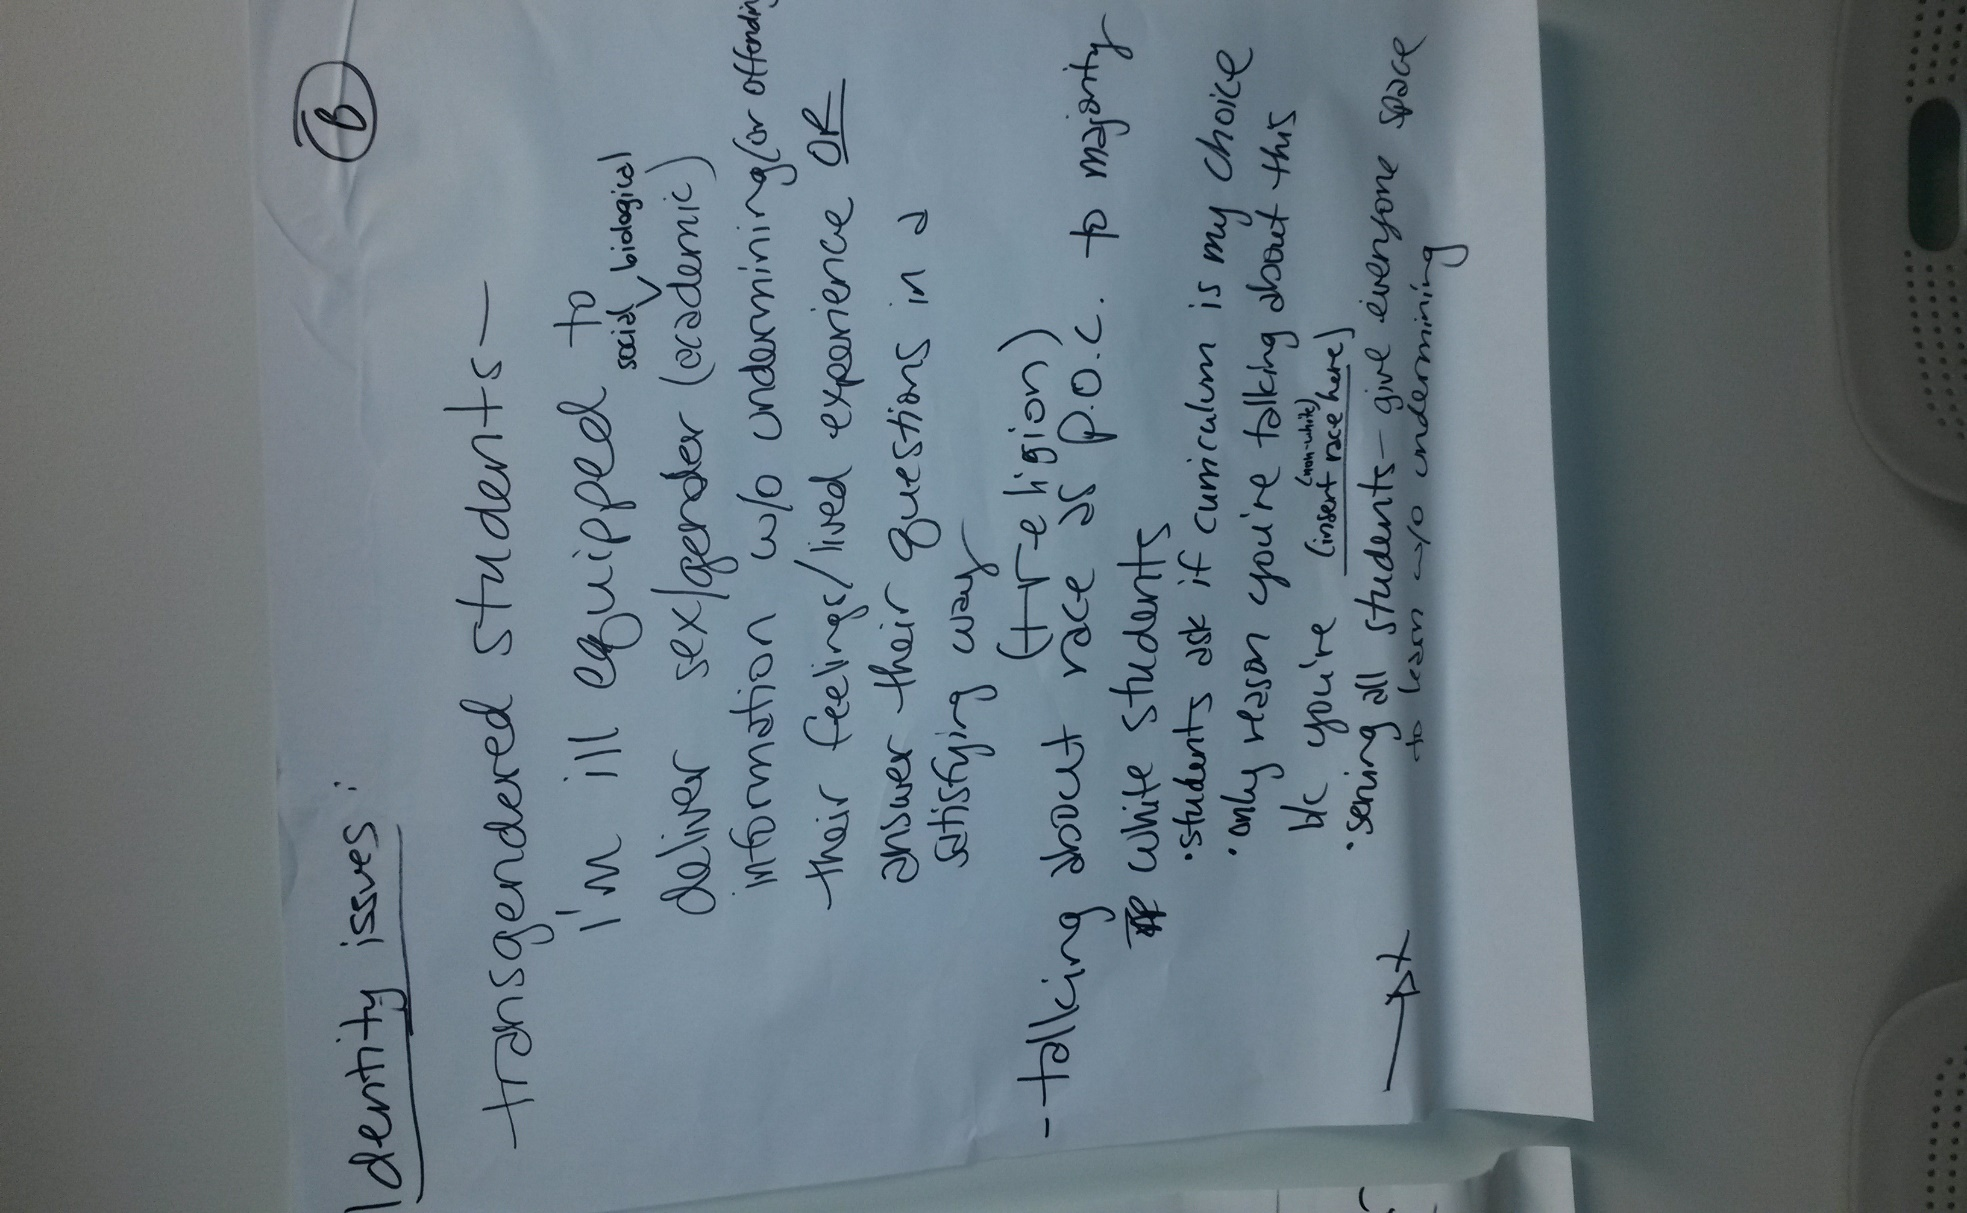 Identity issues:
B
- transgendered students -
I'm ill equipped to
social biological
deliver sex/gender (academic)
information w/o undermining (or offending
their feelings/lived experience OR
answer their questions in a
satisfying way
(+ religion)
- talking about race as P.O.C. to majority
white students
• students ask if curriculum is my choice
• only reason you're talking about this
(non-white)
b/c you're (insert race here)
• seeing all students - give everyone space
to learn w/o undermining